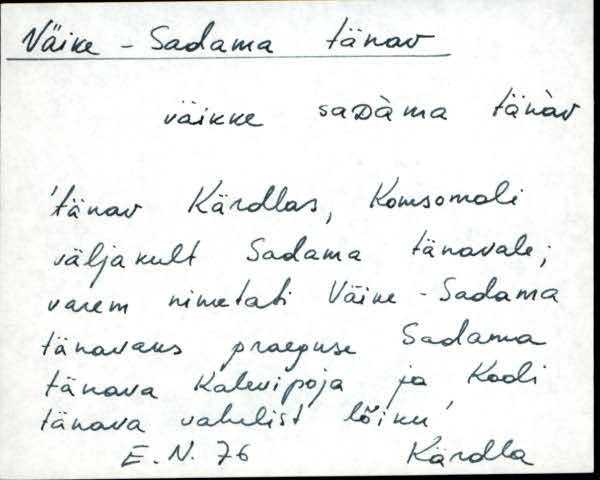 Väike - Sadama tänav
väikke saDàma tänàv
'tänav Kärdlas, Komsomoli
väljakult Sadama tänavale;
varem nimetati Väike - Sadama
tänavaks praeguse Sadama
tänava Kalevipoja ja Kooli
tänava vahelist lõiku'
E. N. 76 Kärdla